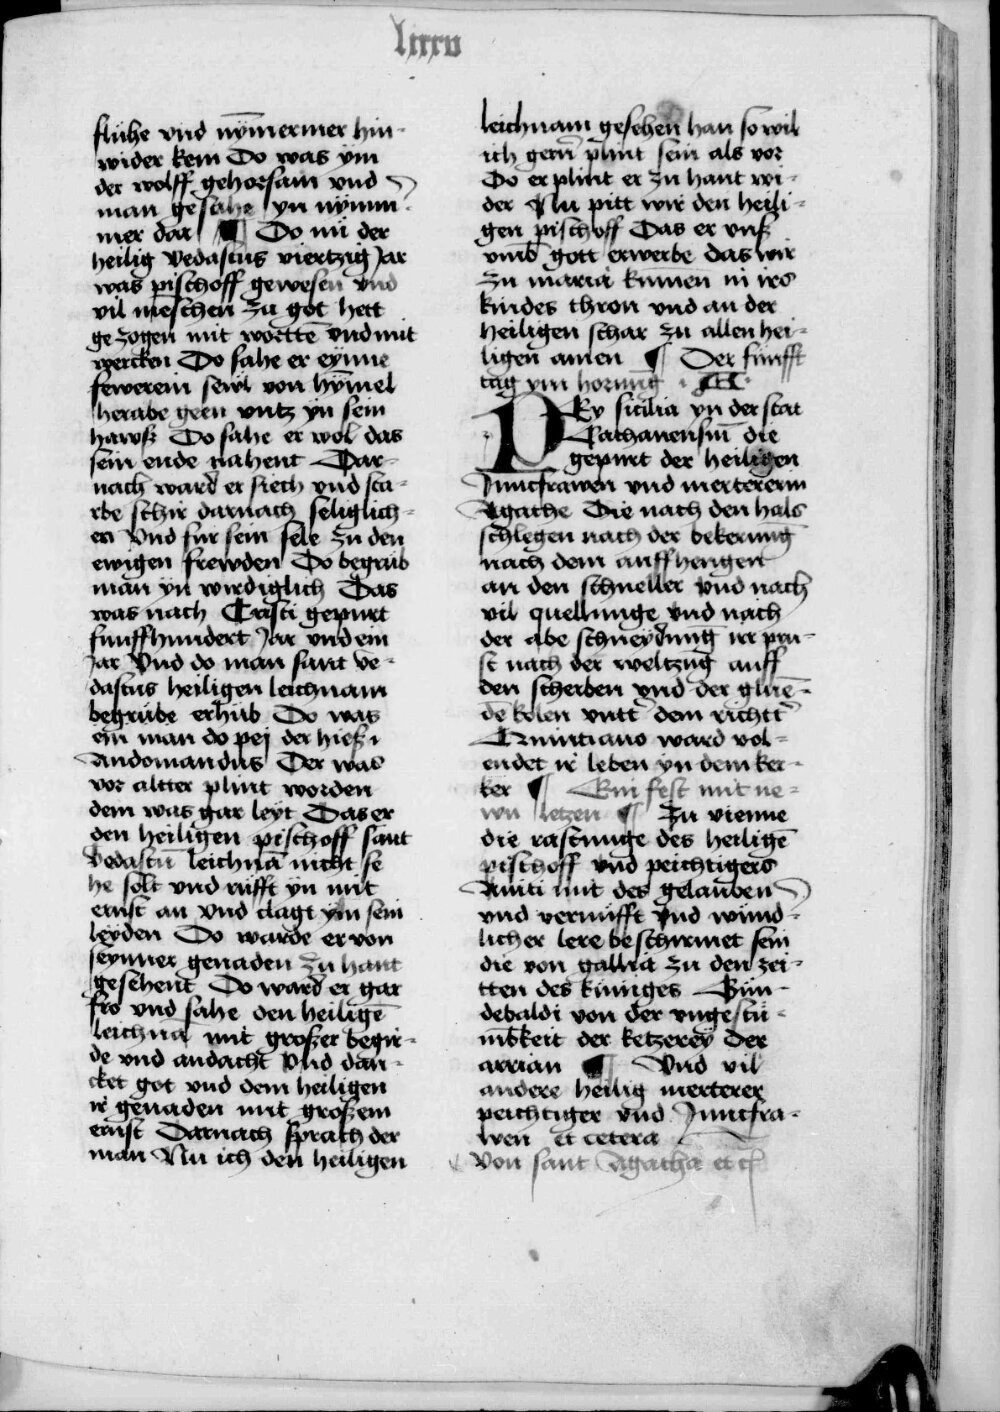 lxxxv
fluhe vnd nȳmermer hin-
wider kem Do was ym
der wolff gehorsam vnd
man gesahe yn nymm-
mer dar ¶ Do nu der
heilig Vedastus viertzig Jar
was pischoff gewesen vnd
vil mēschen zu got hett
gezogen mit wortē vnd mit
wercken Do sahe er eynne
fewerein sewl von hȳmel
herabe geen vntz yn sein
hawß Do sahe er wol das
sein ende nahent Dar-
nach ward er siech vnd sta-
rbe schir darnach seliglich-
en Vnd fur sein sele zu den
ewigen frewden Do begrub
man yn wirdiglich Das
was nach Cristi gepurt
funffhundert Jar vnd ein
Jar Vnd do man sant Ve-
dastus heiligen leichnam
begrube erhub Do was
ein man do pej der hieß
Andomandus Der was
vor altter plint worden
dem was gar leyt Das er
den heiligen pischoff sant
Vedastū leichnā nicht se
he solt vnd rufft yn mit
ernst an vnd clagt ym sein
leyden Do warde er von
seynner genaden zu hant
gesehent Do ward er gar
fro vnd sahe den heiligē
leichnā mit großer begir-
de vnd andacht Vnd dan-
cket got vnd dem heiligen
ir genaden mit großem
ernst Darnach sprach der
man Nu ich den heiligen
leichnam gesehen han so wil
ich gern plint sein als vor
Do er plint er zu hant wi-
der Nu pitt wir den heili-
gen pischoff Das er vnß
vmb gott erwerbe das wir
zu maria kūmen in irs
kindes thron vnd an der
heiligen schar zu allen hei-
ligen amen ¶ Der funfft
tag ym hornūg
Ey sicilia yn der stat
Cathanensiū die
gepurt der heiligen
Junckfrawen vnd merterern
Agathe Die nach den hals
schlegen nach der bekerung
nach dem auffhengen
an den schneller vnd nach
vil quellunge vnd nach
der abe schneydung irr pru-
st nach der weltzug auff
den scherben vnd der gluē-
de kolen vntt dem richtt
Quintiano ward vol-
endet ir leben yn dem ker-
ker ¶ Ein fest mit ne-
wn letzen ¶ Zu vienne
die rastunge des heiligē
pischoff vnd peichtigers
Auiti mit des gelauben
vnd vernufft vnd wund-
licher lere beschirmet sein
die von gallia zu den zei-
tten des kuniges Gun-
debaldi von der vngestu-
mbkeit der ketzerey der
arrian ¶ Vnd vil
andere heilig merterer
peichtiger vnd Junckfra-
wen et cetera
Von sant Agatha